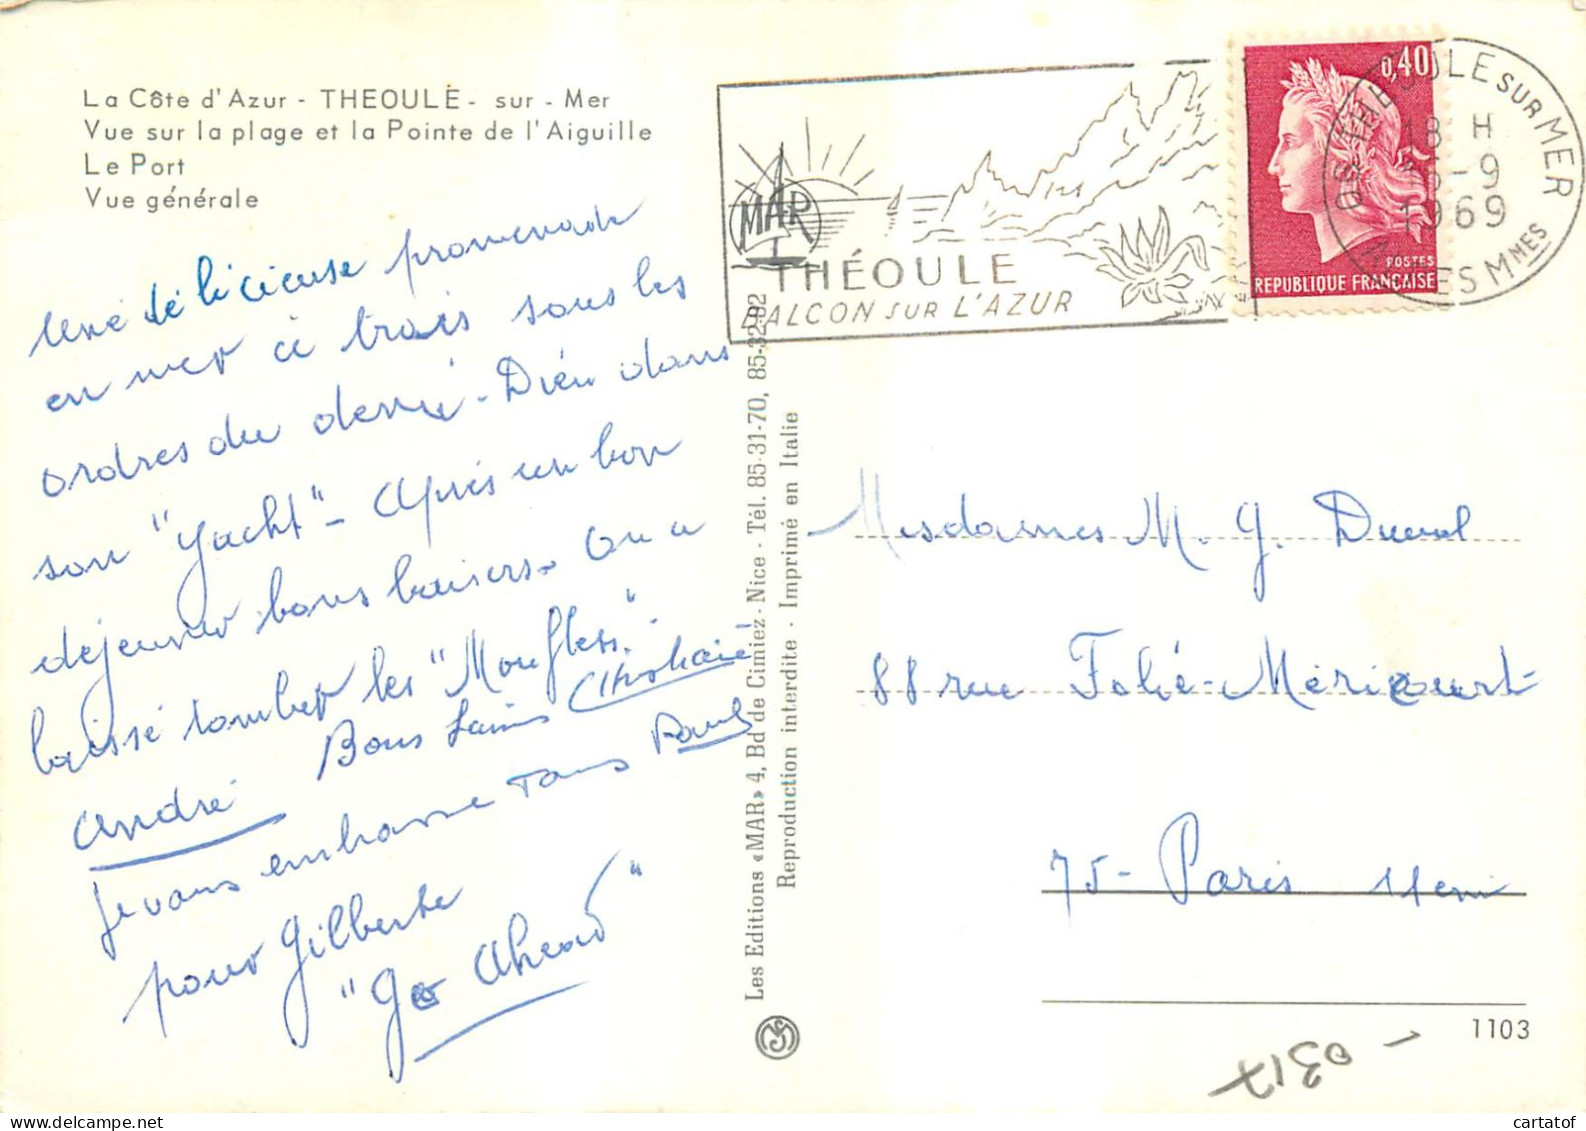 La Côte d'Azur - THEOULE - sur - Mer
Vue sur la plage et la Pointe de l'Aiguille
Le Port
Vue générale
Une délicieuse promenade
en mer à trois sous les
ordres du demi-Dieu dans
son "Yacht" - Après un bon
déjeuner bons baisers. On a
laissé tomber les "Moufles".
André Bons baisers
Je vous embrasse tous Paul
pour Gilberte
"Go Ahead"
Les Editions «MAR» 4, Bd de Cimiez - Nice - Tél. 85-31-70, 85-32-92
Reproduction interdite - Imprimé en Italie
MAR
THÉOULE
BALCON SUR L'AZUR
0,40
POSTES
REPUBLIQUE FRANÇAISE
THEOULE SUR MER
18 H
-9
1969
Mmes
Mesdames M. G. Duval
88 rue Folie-Méricourt
75 - Paris 11em
1103
0317
cartatof